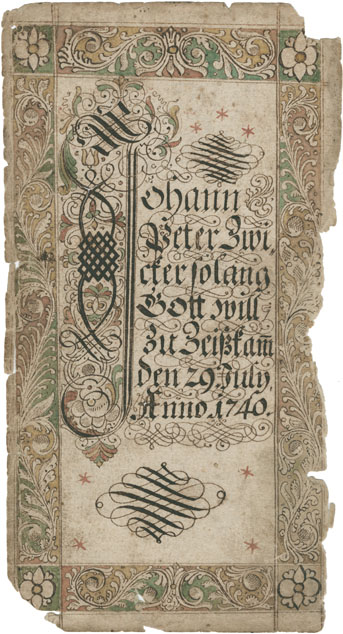 Johann
Peter Zwi,
cker solang
Gott will
zu Zeißkam̅
den 29 July
Anno. 1740.